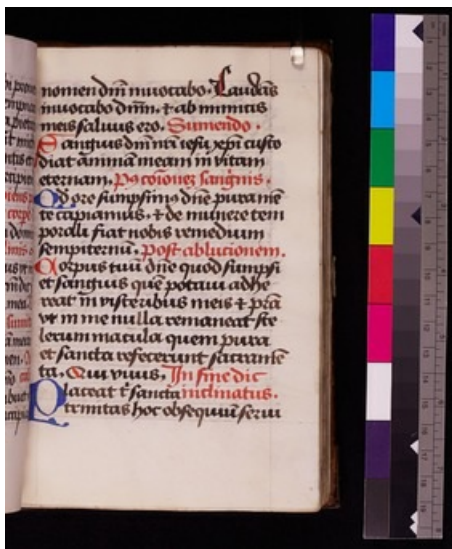 nomen dnī invocabo. Laudās
invocabo dnm̄. ⁊ ab inimicis
meis salvus ero. Sumendo.
Sanguis dnī nrī iesu xpī custo
diat animam meam in vitam
eternam. sanguinis.
Qd ore sumpsimꝰ dnē pura mē
te capiamus. ⁊ de munere tem
porali fiat nobis remedium
sempiternū. Post ablucionem.
Corpus tuū dnē quod sumpsi
et sanguis quē potavi adhe
reat in visceribus meis ⁊ prā
vt in me nulla remaneat sce
lerum macula quem pura
et sancta refecerunt sacramē
ta. Qui vivis. In fine dic
Placeat t̄ sancta inclinatus.
trinitas hoc obsequiū servi